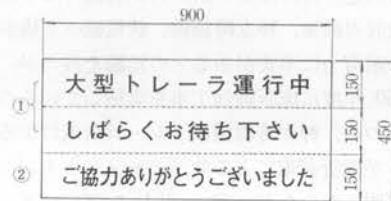 900
① 大型トレーラ運行中
しばらくお待ち下さい
② ご協力ありがとうございました
150
150
150
450